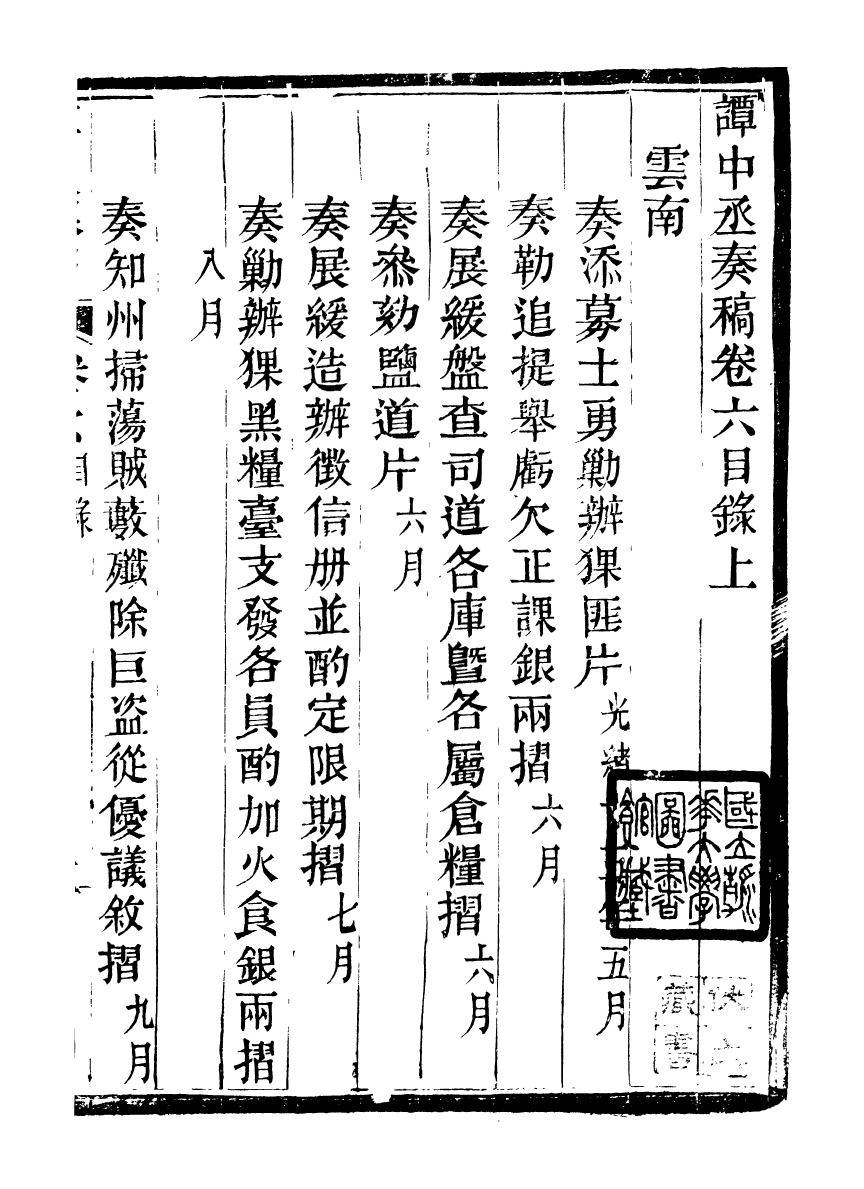 譚中丞奏稿卷六目錄上
雲南
奏添募士勇勦辦猓匪片 光緒 年五月
奏勒追提舉虧欠正課銀兩摺 六月
奏展緩盤查司道各庫曁各屬倉糧摺 六月
奏叅劾鹽道片 六月
奏展緩造辦徵信册並酌定限期摺 七月
奏勦辦猓黑糧臺支發各員酌加火食銀兩摺
八月
奏知州掃蕩賊藪殲除巨盜從優議敘摺 九月
國立清華大學圖書館藏
藏書